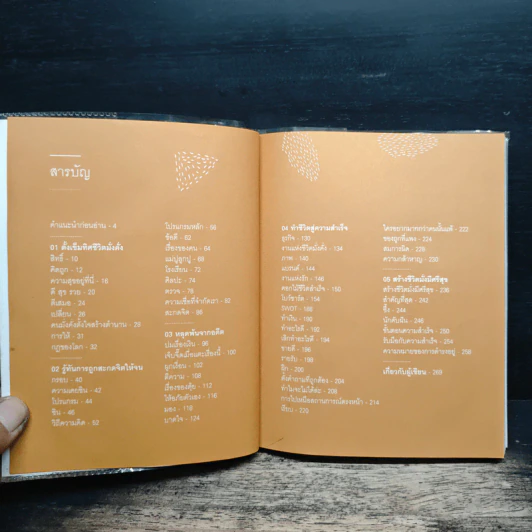 สารบัญ
คำแนะนำก่อนอ่าน - 4
01 ตั้งเข็มทิศชีวิตมั่งคั่ง
สิทธิ์ - 10
คิดถูก - 12
ความสุขอยู่ที่นี่ - 16
ดี สุข รวย - 20
ดีเสมอ - 24
เปลี่ยน - 26
คนมั่งคั่งตั้งใจสร้างตำนาน - 29
การให้ - 31
กฎของโลก - 32
02 รู้ทันการถูกสะกดจิตให้จน
กรอบ - 40
ความเคยชิน - 42
โปรแกรม - 44
ชิน - 46
วิถีความคิด - 52
โปรแกรมหลัก - 56
ข้อดี - 62
เรื่องของคน - 64
แม่ปูลูกปู - 68
โรงเรียน - 72
ศิลปะ - 74
ตรวจ - 76
ความเชื่อที่จำกัดเรา - 92
สะกดจิต - 96
03 หลุดพ้นจากอดีต
ปมเรื่องเงิน - 98
ผูกเงื่อน - 102
สังคาม - 108
เรื่องของคุ้ย - 112
ให้อภัยตัวเอง - 116
มอง - 118
บาดใจ - 124
04 ทำชีวิตสู่ความสำเร็จ
ธุรกิจ - 130
งานแห่งชีวิตมั่งคั่ง - 134
ภาพ - 140
แบรนด์ - 144
งานแห่งรัก - 146
ดอกไม้ชีวิตสำเร็จ - 150
SWOT - 182
ทำเงิน - 190
ทำอะไรดี - 192
เลิกทำอะไรดี - 194
ขายดี - 196
รายรับ - 198
รู้จัก - 200
ตั้งคำถามที่ถูกต้อง - 204
ทำไมจะไม่ได้ล่ะ - 208
การไปเหนือสถานการณ์ตรงหน้า - 214
เงียบ - 220
ใครพยายามมากกว่าคนนั้นแพ้ - 222
ของถูกที่แพง - 224
สมการนิด - 226
ความกล้าหาญ - 230
05 สร้างชีวิตมั่งมีศรีสุข
สร้างชีวิตมั่งมีศรีสุข - 236
สำคัญที่สุด - 242
ซึ้ง - 244
นักคับฝัน - 246
ขั้นตอนความสำเร็จ - 250
รับมือกับความสำเร็จ - 254
ความหมายของการดำรงอยู่ - 258
เกี่ยวกับผู้เขียน - 269